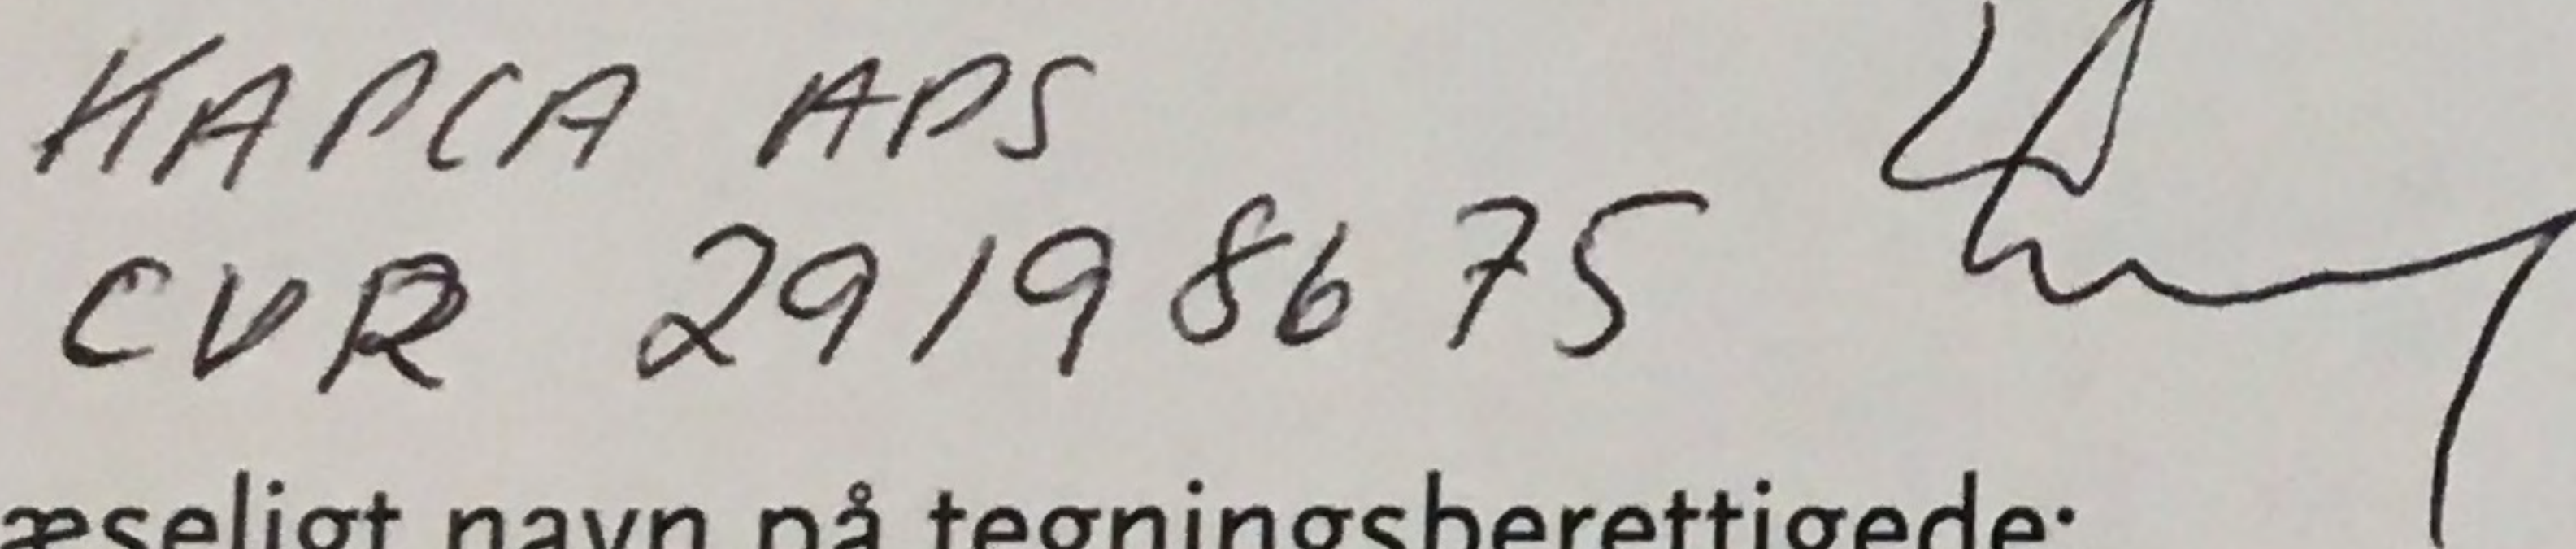 KAPCA APS
CVR 29198675
æseligt navn på tegningsberettigede: